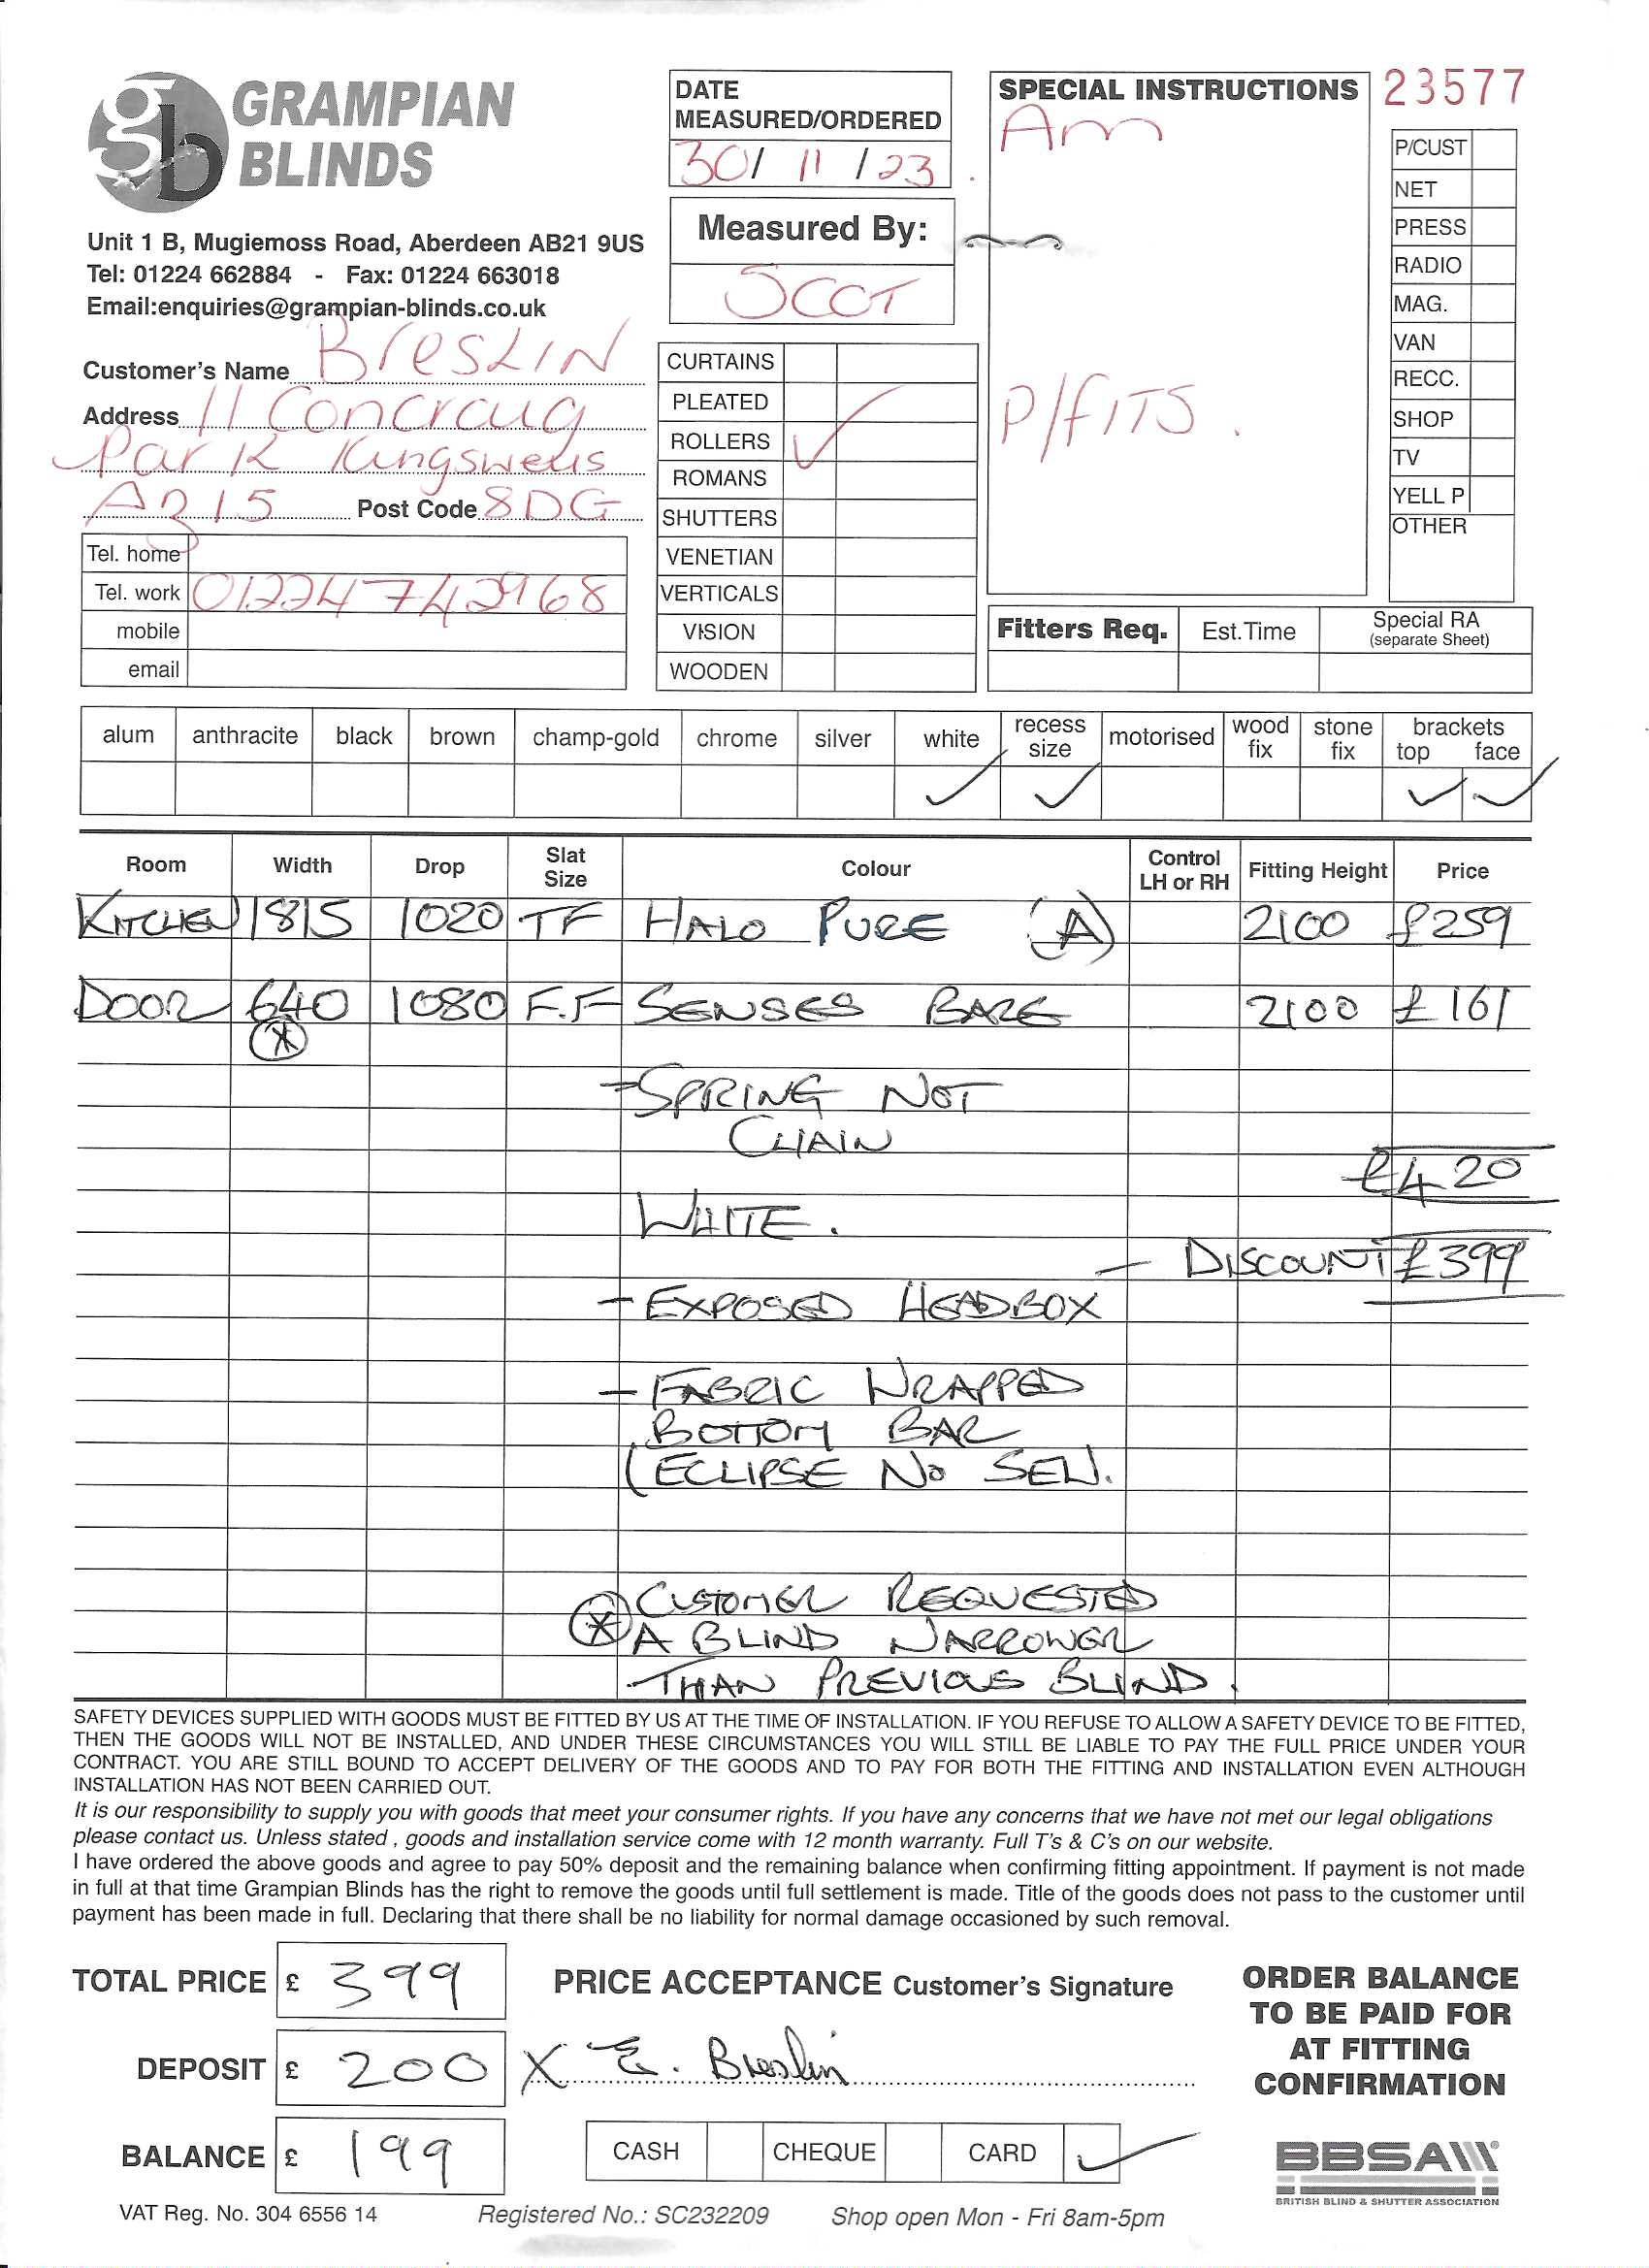 GRAMPIAN
BLINDS
Unit 1 B, Mugiemoss Road, Aberdeen AB21 9US
Tel: 01224 662884 - Fax: 01224 663018
Email:enquiries@grampian-blinds.co.uk
Customer's Name BresLIN
Address 11 Concraig
Park Kingswells
AB15 Post Code 8DG
Tel. home
Tel. work 01224 742968
mobile
email
DATE
MEASURED/ORDERED
30/ 11 /23
Measured By:
SCOT
CURTAINS
PLEATED
ROLLERS ✓
ROMANS
SHUTTERS
VENETIAN
VERTICALS
VISION
WOODEN
SPECIAL INSTRUCTIONS
Am
P/FITS.
23577
P/CUST
NET
PRESS
RADIO
MAG.
VAN
RECC.
SHOP
TV
YELL P
OTHER
Fitters Req. Est.Time Special RA
(separate Sheet)
alum anthracite black brown champ-gold chrome silver white recess size motorised wood fix stone fix brackets top face
✓ ✓ ✓ ✓
Room Width Drop Slat Size Colour Control LH or RH Fitting Height Price
KITCHEN 1815 1020 TF HALO PURE (A) 2100 £259
DOOR 640 1080 F.F SENSES BARE 2100 £161
(*)
- SPRING NOT
CHAIN
£420
WHITE.
- DISCOUNT £399
- EXPOSED HEADBOX
- FABRIC WRAPPED
BOTTOM BAR
(ECLIPSE NO SEW.
(*) CUSTOMER REQUESTED
A BLIND NARROWER
THAN PREVIOUS BLIND.
SAFETY DEVICES SUPPLIED WITH GOODS MUST BE FITTED BY US AT THE TIME OF INSTALLATION. IF YOU REFUSE TO ALLOW A SAFETY DEVICE TO BE FITTED,
THEN THE GOODS WILL NOT BE INSTALLED, AND UNDER THESE CIRCUMSTANCES YOU WILL STILL BE LIABLE TO PAY THE FULL PRICE UNDER YOUR
CONTRACT. YOU ARE STILL BOUND TO ACCEPT DELIVERY OF THE GOODS AND TO PAY FOR BOTH THE FITTING AND INSTALLATION EVEN ALTHOUGH
INSTALLATION HAS NOT BEEN CARRIED OUT.
It is our responsibility to supply you with goods that meet your consumer rights. If you have any concerns that we have not met our legal obligations
please contact us. Unless stated , goods and installation service come with 12 month warranty. Full T's & C's on our website.
I have ordered the above goods and agree to pay 50% deposit and the remaining balance when confirming fitting appointment. If payment is not made
in full at that time Grampian Blinds has the right to remove the goods until full settlement is made. Title of the goods does not pass to the customer until
payment has been made in full. Declaring that there shall be no liability for normal damage occasioned by such removal.
TOTAL PRICE £ 399
PRICE ACCEPTANCE Customer's Signature
DEPOSIT £ 200
X E. Breslin
BALANCE £ 199
CASH CHEQUE CARD ✓
ORDER BALANCE
TO BE PAID FOR
AT FITTING
CONFIRMATION
BBSA
BRITISH BLIND & SHUTTER ASSOCIATION
VAT Reg. No. 304 6556 14 Registered No.: SC232209 Shop open Mon - Fri 8am-5pm